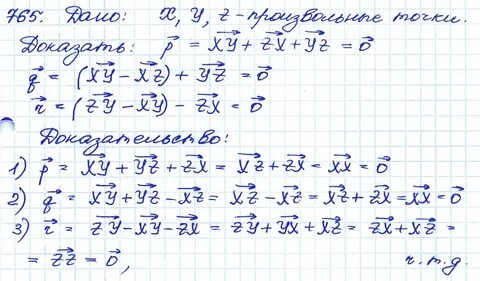 765. Дано: X, Y, Z - произвольные точки.
Доказать: p⃗ = XY⃗ + ZX⃗ + YZ⃗ = 0⃗
q⃗ = (XY⃗ - XZ⃗) + YZ⃗ = 0⃗
r⃗ = (ZY⃗ - XY⃗) - ZX⃗ = 0⃗
Доказательство:
1) p⃗ = XY⃗ + YZ⃗ + ZX⃗ = XZ⃗ + ZX⃗ = XX⃗ = 0⃗
2) q⃗ = XY⃗ + YZ⃗ - XZ⃗ = XZ⃗ - XZ⃗ = XZ⃗ + ZX⃗ = XX⃗ = 0⃗
3) r⃗ = ZY⃗ - XY⃗ - ZX⃗ = ZY⃗ + YX⃗ + XZ⃗ = ZX⃗ + XZ⃗ =
= ZZ⃗ = 0⃗, ч.т.д.